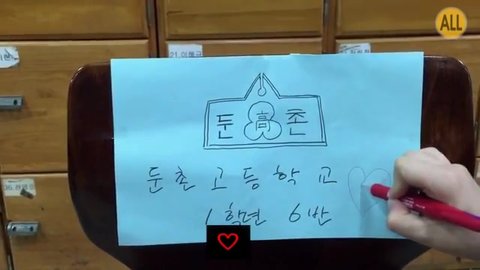 ALL
21.이해규
둔 高 촌
둔촌고등학교
1학년 6반